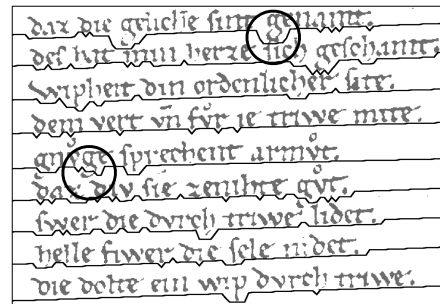 daz die geliche sint genant.
des hat min herze sich geschamt.
wipheit din ordenlicher site.
dem vert vn̄ fvͦr ie triwe mite.
gnvͦge sprechent armvͦt.
daz div sie zenihte gvͦt.
swer die dvrch triwe lidet.
helle fiwer die sele midet.
die dolte ein wip dvrch triwe.